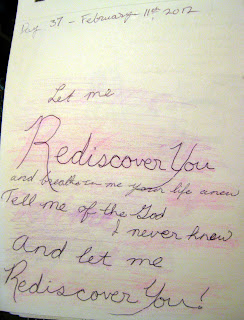 Day 37 - February 11th 2012
Let me
Rediscover You
and breathe in me your life anew
Tell me of the God
I never knew
And let me
Rediscover You!